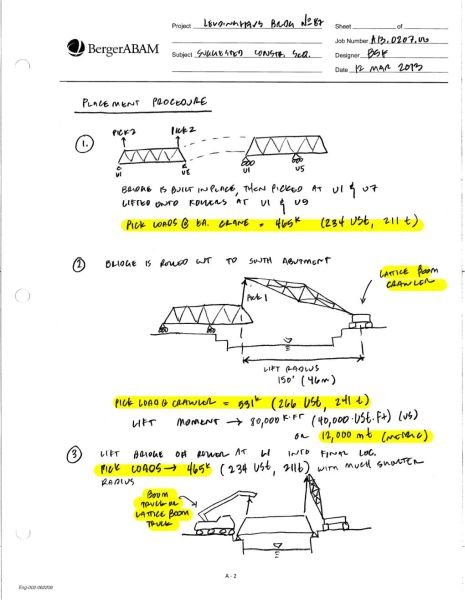 Project LEUDINGHAUS BRDG Nº 87
Sheet of
Job Number A13.0207.00
BergerABAM
Subject SUGGESTED CONSTR. SEQ.
Designer BSK
Date 12 MAR 2013
PLACEMENT PROCEDURE
1.
PICK 2 PICK 2
U1 U8 U1 U5
BRIDGE IS BUILT IN PLACE, THEN PICKED AT U1 & U7
LIFTED ONTO ROLLERS AT U1 & U5
PICK LOADS @ EA. CRANE = 465ᴷ (234 USt, 211 t)
2 BRIDGE IS ROLLED OUT TO SOUTH ABUTMENT
LATTICE BOOM
CRAWLER
PICK 1
LIFT RADIUS
150' (46m)
PICK LOAD @ CRAWLER = 531ᴷ (266 USt, 241 t)
LIFT MOMENT → 80,000 K·FT (40,000 USt·Ft) (US)
OR 12,000 mt (METRIC)
3 LIFT BRIDGE OFF ROLLER AT U1 INTO FINAL LOC.
PICK LOADS → 465ᴷ (234 USt, 211t) WITH MUCH SHORTER
RADIUS
BOOM
TRUCK OR
LATTICE BOOM
TRUCK
A - 2